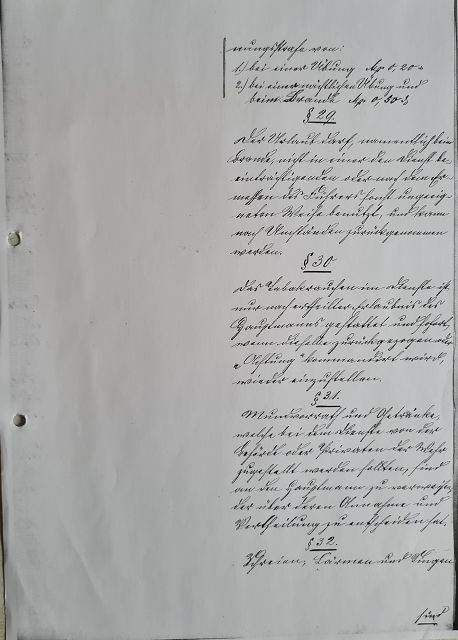 nungsstrafe von:
1.) bei einer Übung M 0,20
2.) bei einer nächtlichen Übung und
beim Brande M 0,50
§ 29.
Der Urlaub darf, namentlich beim
Brande, nicht in einer den Dienst be-
einträchtigenden oder nach dem Er-
messen des Führers sonst ungeeig-
neten Weise benutzt, und kann
nach Umständen zurückgenommen
werden.
§ 30
Das Tabakrauchen im Dienste ist
nur nach ertheilter Erlaubnis des
Hauptmanns gestattet und sofort,
wenn dieselbe zurückgezogen oder
„Achtung“ kommandert wird,
wieder einzustellen.
§ 31.
Mundvorrath und Getränke,
welche bei dem Dienste von der
Behörde oder Privaten der Wehr
zugestellt werden sollten, sind
an den Hauptmann zu verweisen,
der über deren Annahme und
Vertheilung zu entscheiden hat.
§ 32.
Schreien, Lärmen und Singen